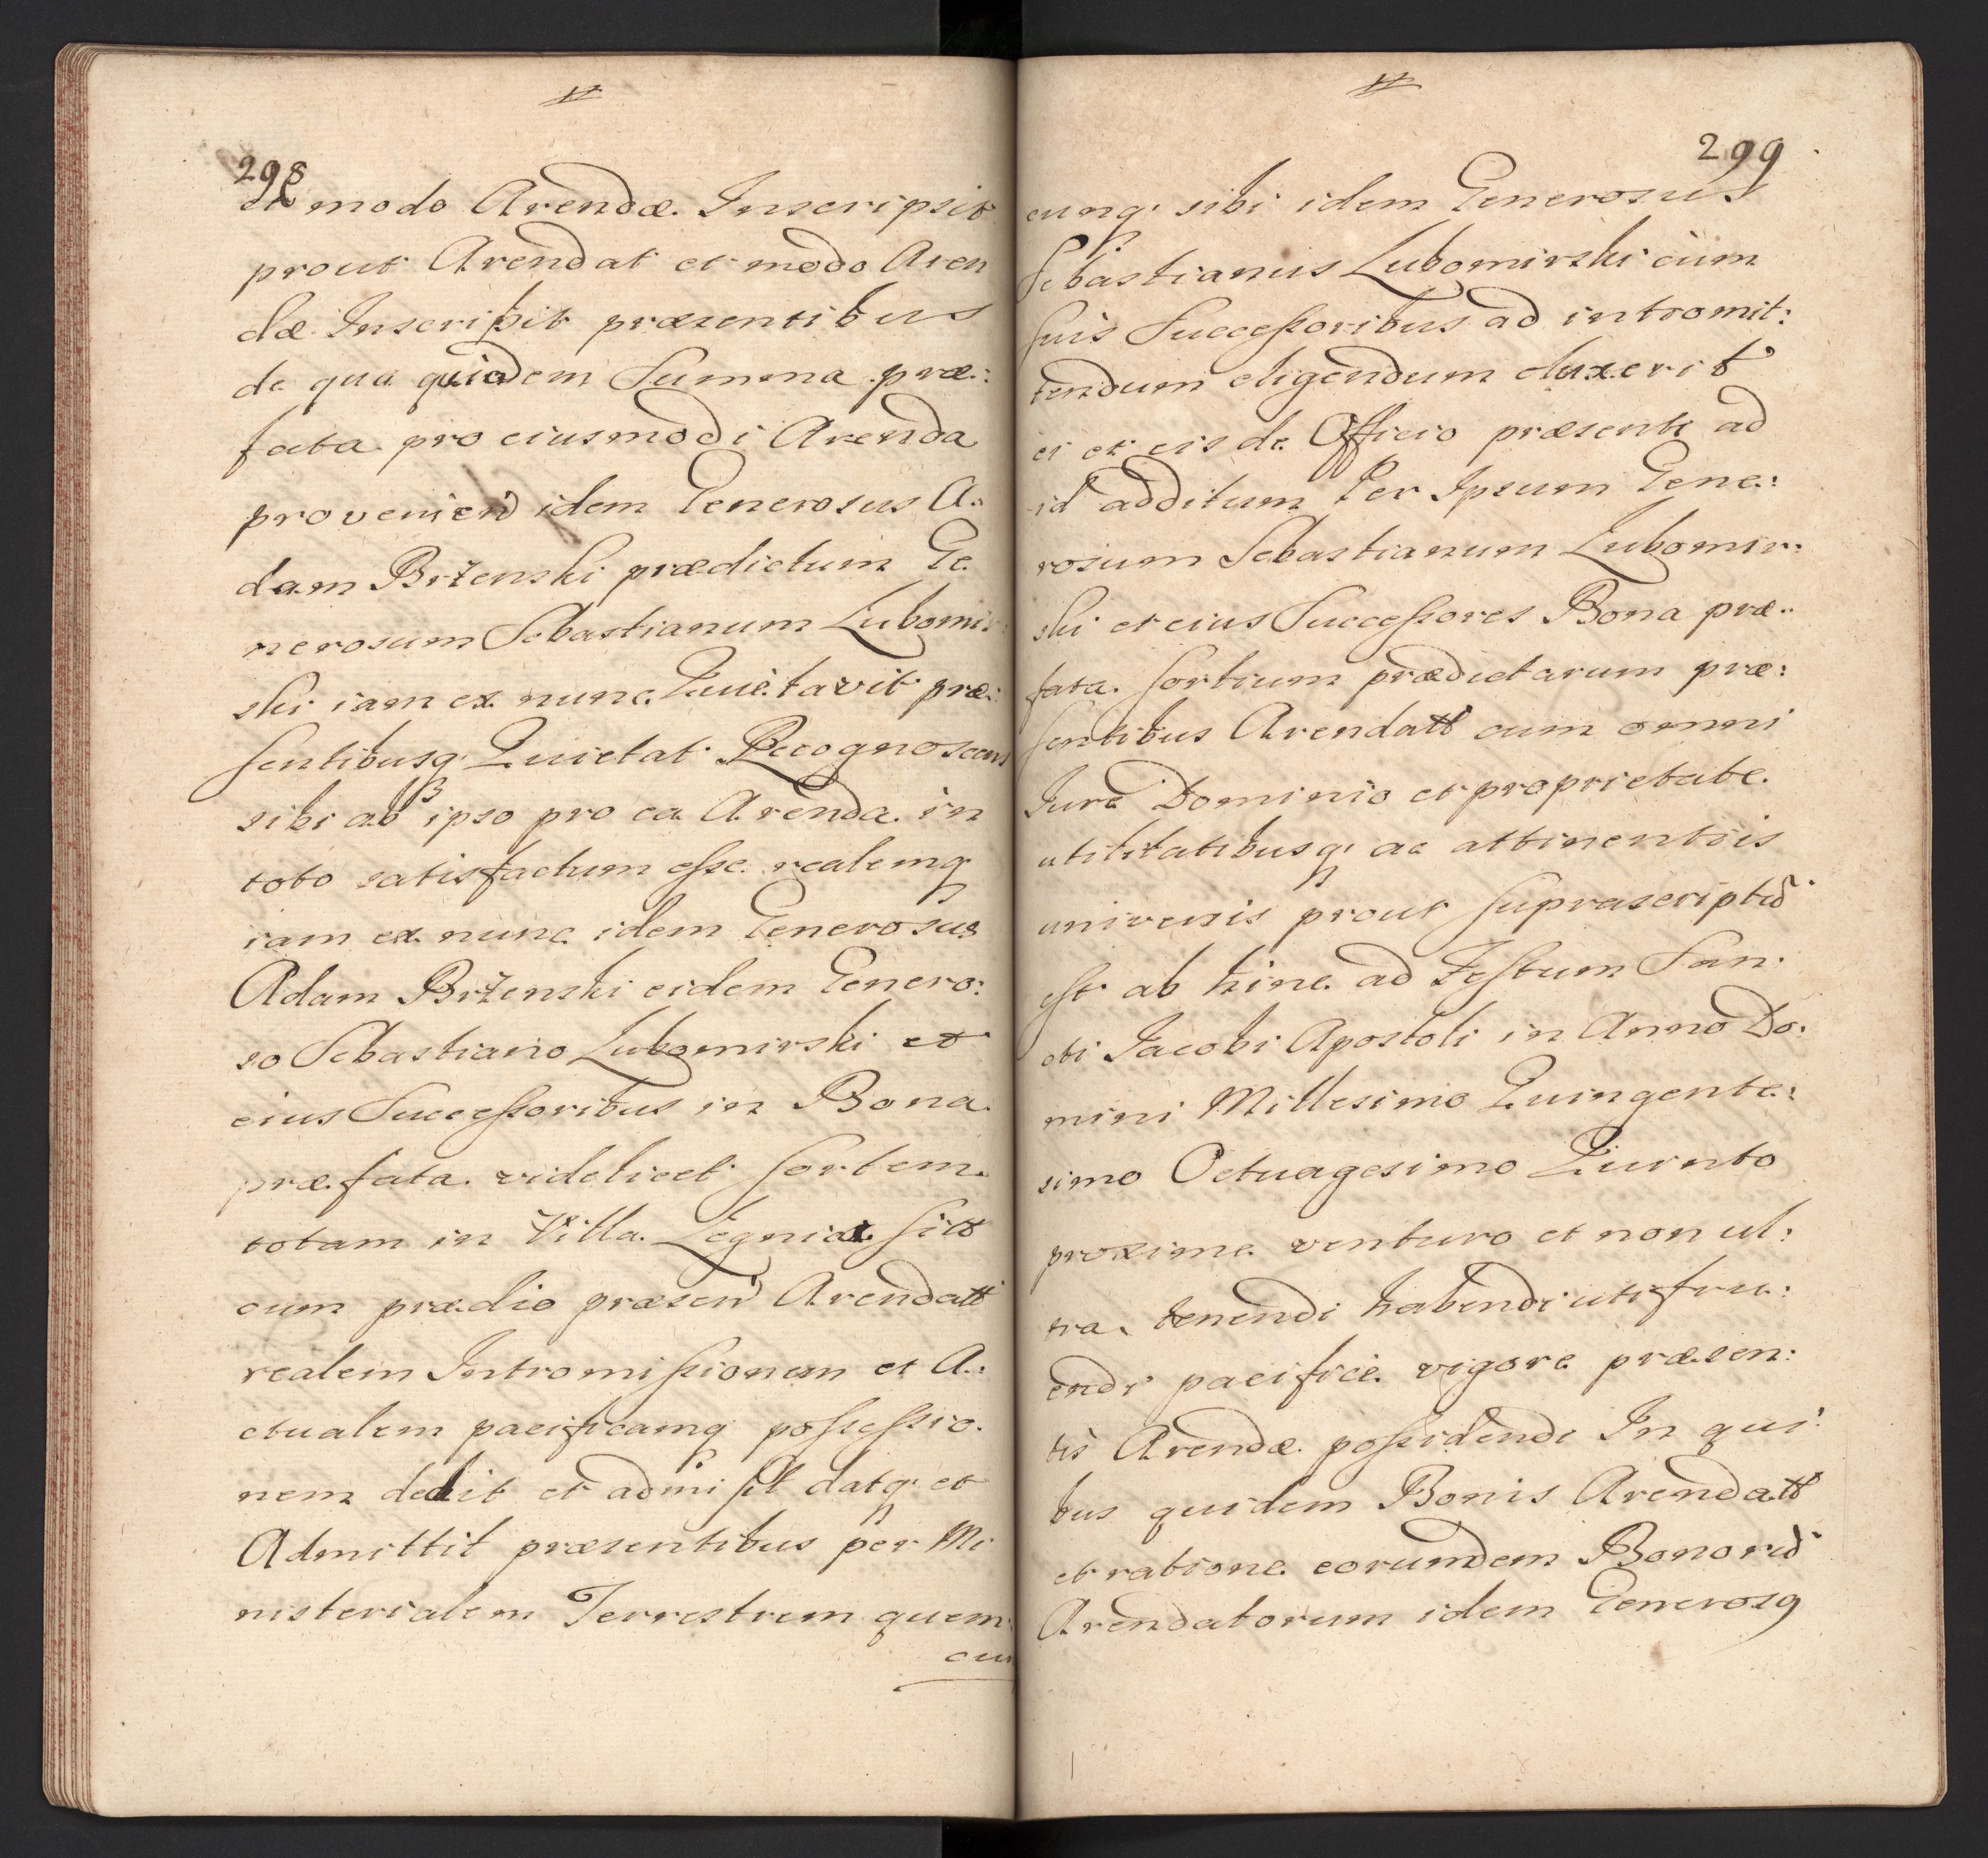 298
et modo Arendæ. Inscripsit
prout Arendat et modo Aren
dæ Inscribit præsentibus
de qua quidem Summa præ:
fata pro eiusmodi Arenda
provenien̄ idem Generosus A:
dam Brżenski prædictum Ge
nerosum Sebastianum Lubomir:
ski iam ex nunc Quietavit præ:
sentibusq́ Quietat Recognoscens
sibi ab ipso pro ea Arenda in
toto satisfactum esse realemq́
iam ex nunc idem Generosus
Adam Brżenski eidem Genero:
so Sebastiano Lubomirski et
eius Successoribus in Bona
præfata videlicet sortem
totam in Villa Zegnia sitt
cum prædio præsen̄ Arendatt
realem Intromissionem et A:
ctualem pacificamq́ possessio:
nem dedit et admisit datq́ et
Admittit præsentibus per Mi
nisterialem Terrestrem quem:
cun
299
cunq́ sibi idem Generosus
Sebastianus Lubomirski cùm
suis Successoribus ad intromit:
tendum eligendum duxerit
ei et eis de Officio præsenti ad
id additum Per Ipsum Gene:
rosum Sebastianum Lubomir:
ski et eius Successores Bona præ:
fata sortium prædictarum præ:
sentibus Arendatt cum omni
Iure Dominio et proprietate
utilitatibusq́ ac attinentiis
universis prout suprascriptū
est ab hinc ad Festum San:
cti Jacobi Apostoli in Anno Do:
mini Millesimo Quingente:
simo Octuagesimo Quinto
proxime venturo et non ul:
tra tenendi habendi uti fru:
endi pacifice vigore præsen:
tis Arendæ possidendi In qui:
bus quidem Bonis Arendatt
et ratione eorumdem Bonorū
Arendatorum idem Generosq